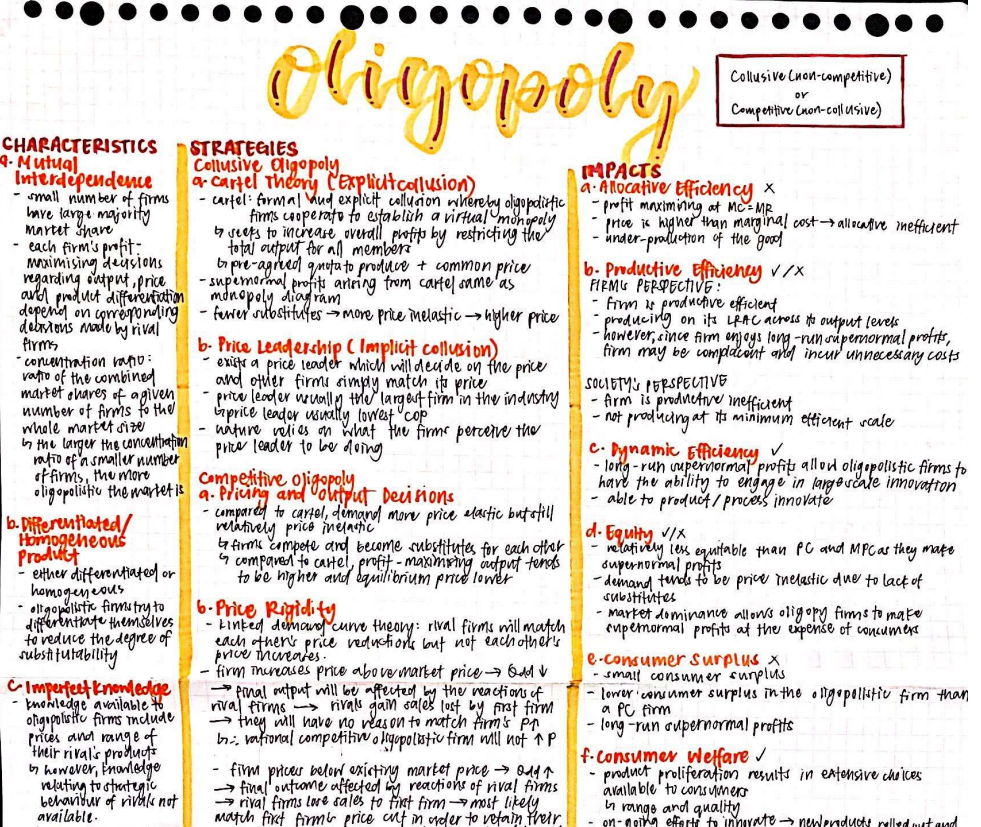 Oligopoly
Collusive (non-competitive)
or
Competitive (non-collusive)
CHARACTERISTICS
a. Mutual
Interdependence
- small number of firms
have large majority
market share
- each firm's profit-
maximising decisions
regarding output, price
and product differentiation
depend on corresponding
decisions made by rival
firms
- concentration ratio:
ratio of the combined
market shares of a given
number of firms to the
whole market size
↳ the larger the concentration
ratio of a smaller number
of firms, the more
oligopolistic the market is
b. Differentiated/
Homogeneous
Product
- either differentiated or
homogeneous
- oligopolistic firms try to
differentiate themselves
to reduce the degree of
substitutability
c. Imperfect Knowledge
- knowledge available to
oligopolistic firms include
prices and range of
their rival's products
↳ however, knowledge
relating to strategic
behaviour of rivals not
available.
STRATEGIES
Collusive Oligopoly
a. Cartel Theory (Explicit collusion)
- cartel: formal and explicit collusion whereby oligopolistic
firms cooperate to establish a virtual monopoly
↳ seeks to increase overall profits by restricting the
total output for all members
↳ pre-agreed quota to produce + common price
- supernormal profits arising from cartel same as
monopoly diagram
- fewer substitutes → more price inelastic → higher price
b. Price Leadership (Implicit collusion)
- exists a price leader which will decide on the price
and other firms simply match its price
- price leader usually the largest firm in the industry
↳ price leader usually lowest COP
- nature relies on what the firms perceive the
price leader to be doing
Competitive Oligopoly
a. Pricing and Output Decisions
- compared to cartel, demand more price elastic but still
relatively price inelastic
↳ firms compete and become substitutes for each other
↳ compared to cartel, profit-maximising output tends
to be higher and equilibrium price lower
b. Price Rigidity
- kinked demand curve theory: rival firms will match
each other's price reductions but not each other's
price increases.
- firm increases price above market price → Qdd ↓
→ final output will be affected by the reactions of
rival firms → rivals gain sales lost by first firm
→ they will have no reason to match firm's P↑
↳ ∴ rational competitive oligopolistic firm will not ↑ P
- firm prices below existing market price → Qdd ↑
→ final outcome affected by reactions of rival firms
→ rival firms lose sales to first firm → most likely
match first firm's price cut in order to retain their
IMPACTS
a. Allocative Efficiency ×
- profit maximising at MC=MR
- price is higher than marginal cost → allocative inefficient
- under-production of the good
b. Productive Efficiency ✓/×
FIRM'S PERSPECTIVE:
- firm is productive efficient
- producing on its LRAC across its output levels
- however, since firm enjoys long-run supernormal profits,
firm may be complacent and incur unnecessary costs
SOCIETY'S PERSPECTIVE
- firm is productive inefficient
- not producing at its minimum efficient scale
c. Dynamic Efficiency ✓
- long-run supernormal profits allow oligopolistic firms to
have the ability to engage in large scale innovation
- able to product/process innovate
d. Equity ✓/×
- relatively less equitable than PC and MPC as they make
supernormal profits
- demand tends to be price inelastic due to lack of
substitutes
- market dominance allows oligopy firms to make
supernormal profits at the expense of consumers
e. Consumer Surplus ×
- small consumer surplus
- lower consumer surplus in the oligopolistic firm than
a PC firm
- long-run supernormal profits
f. Consumer Welfare ✓
- product proliferation results in extensive choices
available to consumers
↳ range and quality
- on-going efforts to innovate → new products rolled out and